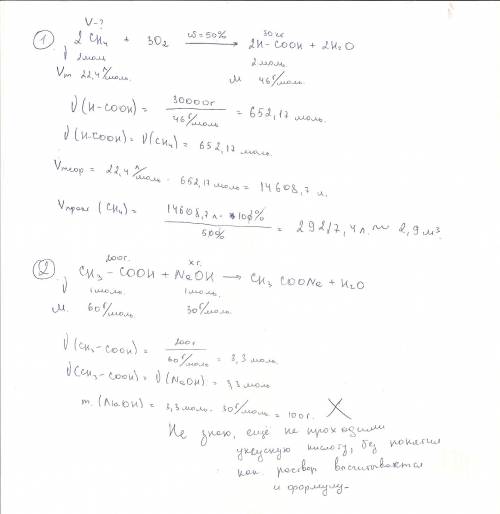 V-?
① 2CH₄ + 3O₂ ω=50% → 30 кг 2H-COOH + 2H₂O
ν 2 моль 2 моль
Vm 22,4 л/моль. M 46 г/моль
ν(H-COOH) = 30000г / 46 г/моль = 652,17 моль.
ν(H-COOH) = ν(CH₄) = 652,17 моль.
Vтеор = 22,4 л/моль · 652,17 моль = 14608,7 л.
Vпракт (CH₄) = 14608,7 л · 100% / 50% = 29217,4 л. ~ 2,9 м³.
② 200г. xг.
CH₃ - COOH + NaOH → CH₃ COONa + H₂O
ν 1 моль. 1 моль.
M. 60 г/моль 30 г/моль.
ν(CH₃-COOH) = 200г / 60 г/моль = 3,3 моль.
ν(CH₃-COOH) = ν(NaOH) = 3,3 моль
m. (NaOH) = 3,3 моль · 30 г/моль = 100г. X
Не знаю, ещё не проходили
уксусную кислоту, без понятия
как раствор высчитывается
и формулу-